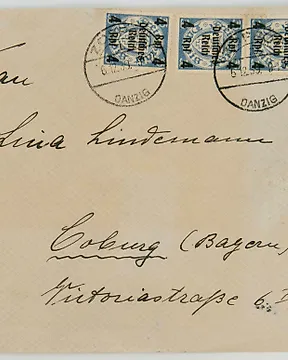 4 Rpf 4
Deutsches
Reich
4 4
4 Rpf 4
Deutsches
Reich
4 4
4 Rpf 4
Deutsches
Reich
4 4
6.12.39
DANZIG
6.12.39
DANZIG
Lina Lindemann
Coburg (Bayern
Viktoriastraße 6.